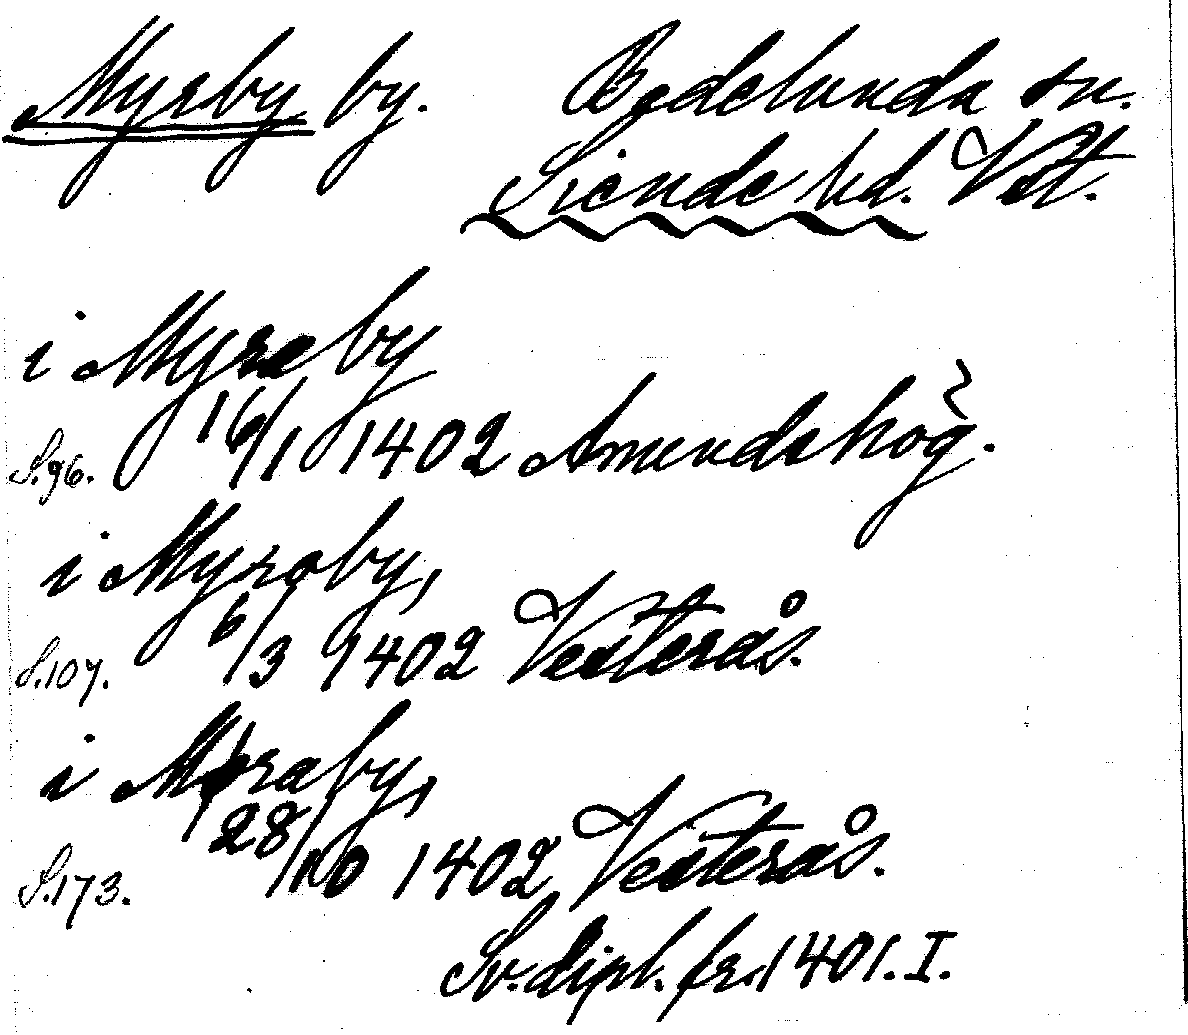 Myrby by. Badelunda sn.
Siende hd. Vstl.
i Myraby
S.96. 16/1 1402 Amundshög.
i Myroby,
S.107. 6/3 1402 Vesterås.
i Møraby,
S.173. 28/10 1402 Vesterås.
Sv. dipl. fr. 1401. I.